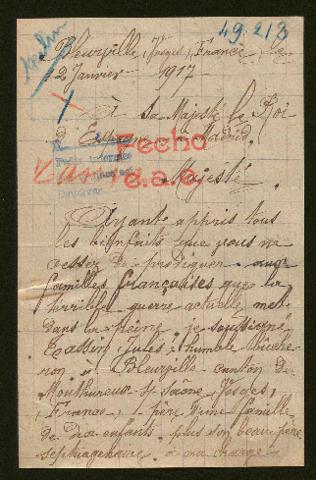 49.213
Bleurville, (Vosges), France, le
2 Janvier 1917
A Sa Majesté le Roi
d'Espagne à Madrid.
Fecho
e.a.e.
Majesté
Ayant appris tous
les bienfaits que vous ne
cessez de prodiguer aux
familles françaises que la
terrible guerre actuelle met
dans la peine, je soussigné
Cassin Jules, humble bûche-
ron à Bleurville canton de
Monthureux s/ Saône, Vosges,
(France), père d'une famille
de dix enfants, plus son beau-père
septuagénaire, à sa charge